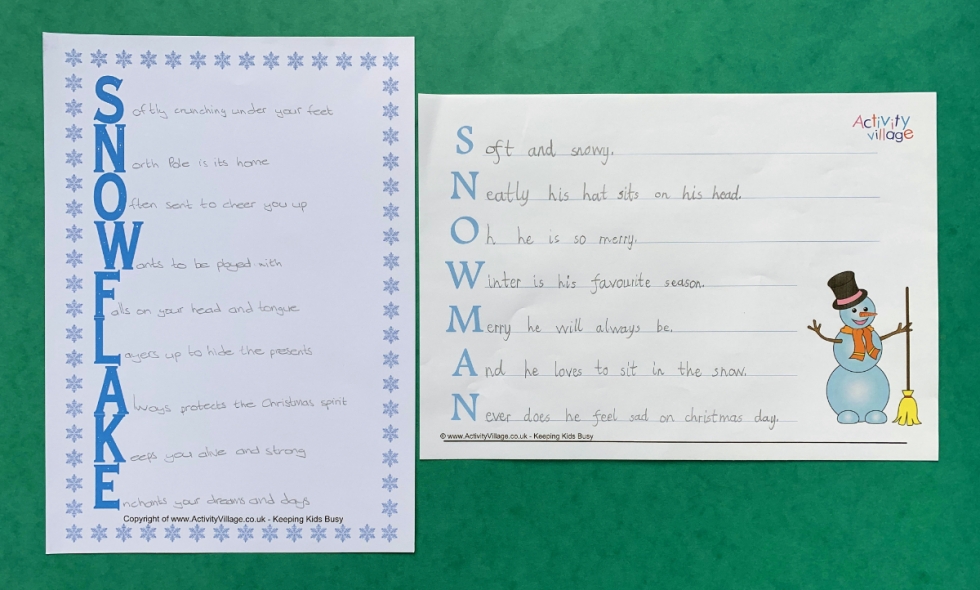 Softly crunching under your feet
North Pole is its home
Often sent to cheer you up
Wants to be played with
Falls on your head and tongue
Layers up to hide the presents
Always protects the Christmas spirit
Keeps you alive and strong
Enchants your dreams and days
Copyright of www.ActivityVillage.co.uk - Keeping Kids Busy
Activity
village
Soft and snowy.
Neatly his hat sits on his head.
Oh he is so merry.
Winter is his favourite season.
Merry he will always be.
And he loves to sit in the snow.
Never does he feel sad on christmas day.
© www.ActivityVillage.co.uk - Keeping Kids Busy